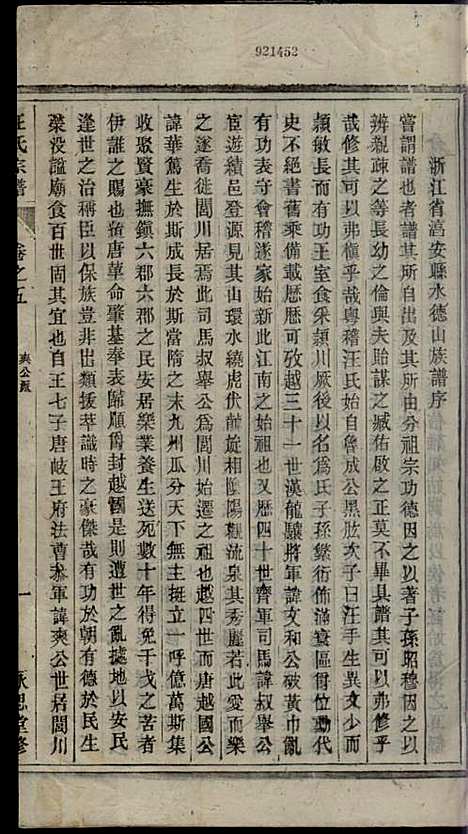 921452
浙江省淳安縣水德山族譜序
嘗謂譜也者譜其所自出及其所由分祖宗功德因之以著子孫昭穆因之以
辨親疎之等長幼之序與夫貽謀之臧佑啟之正莫不畢具譜其可以弗修乎
哉修其可以弗慎乎哉粵稽汪氏始自魯成公黑肱次子曰汪手生異文少而
頴敏長而有功王室食采頴川厥後以名爲氏子孫繁衍佈滿寰區爵位勳代
史不絕書舊乘備載歷歷可攷越三十一世漢龍驤將軍諱文和公破黃巾亂
有功表守會稽遂家始新此江南之始祖也又歷四十世齊軍司馬諱叔舉公
宦遊績邑登源見其山環水繞虎伏前旋相陰陽觀流泉其秀麗若此愛而樂
之遂喬徙閭川居焉此司馬叔舉公爲閭川始遷之祖也越四世而唐越國公
諱華篤生於斯成長於斯當隋之末九州瓜分天下無主挺立一呼億萬斯集
收聚賢豪撫鎮六郡六郡之民安居樂業養生送死數十年得免干戈之苦者
伊誰之賜也殆唐革命肇基奉表歸順爵封越國是則遭世之亂據地以安民
逢世之治稱臣以保族豈非出類援萃識時之豪傑哉有功於朝有德於民生
榮没謚廟食百世固其宜也自王七子唐岐王府法曹叅軍諱爽公世居閭川
汪氏宗譜
卷之五
爽公派
一
承思堂修